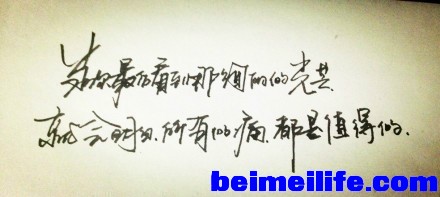 当你最后看到那绚丽的光芒、
就会明白、所有的痛、都是值得的.
beimeilife.com